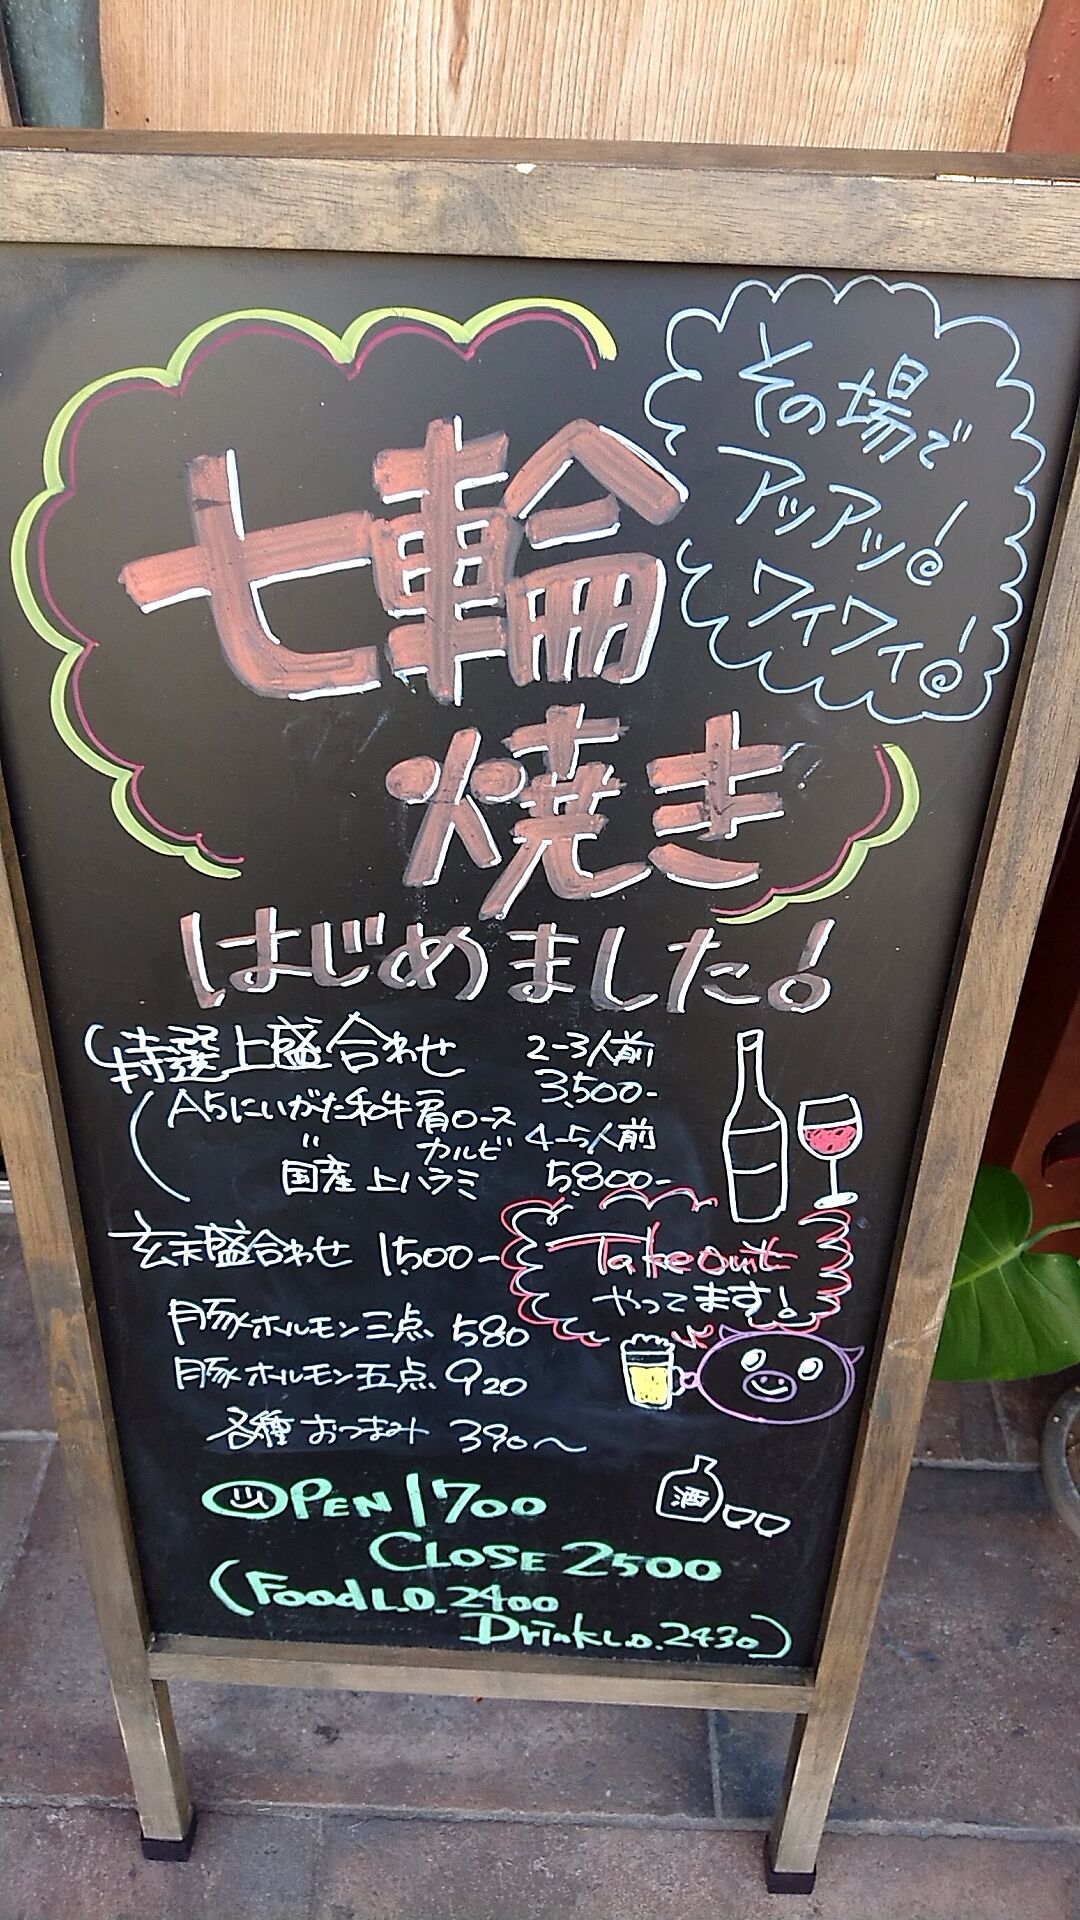 その場で
アッアッ!
ワイワイ!
七輪
焼き
はじめました!
特選上盛合わせ 2-3人前
3,500-
(A5にいがた和牛肩ロース
〃 カルビ 4-5人前
国産 上ハラミ 5,800-
盛合わせ 1,500-
Take out
やってます!
豚ホルモン三点 580
豚ホルモン五点 920
各種おつまみ 390〜
酒
OPEN 1700
CLOSE 2500
(Food L.O. 2400
Drink L.O. 2430)